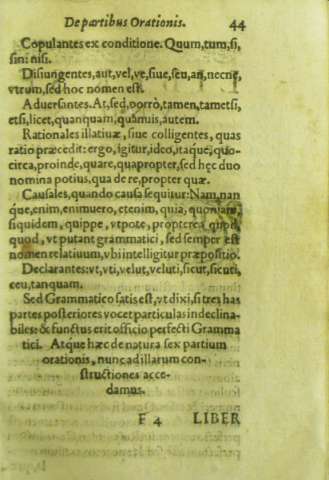 De partibus Orationis. 44
Copulantes ex conditione. Quum, tum, si,
sin: nisi.
Disiungentes, aut, vel, ve, siue, seu, an, necne,
vtrum, sed hoc nomen est.
Aduersantes. At, sed, porrò, tamen, tametsi,
etsi, licet, quanquam, quamuis, autem.
Rationales illatiuæ, siue colligentes, quas
ratio præcedit: ergo, igitur, ideo, itaque, quo-
circa, proinde, quare, quapropter, sed hęc duo
nomina potius, qua de re, propter quæ.
Causales, quando causa sequitur: Nam, nan
que, enim, enimuero, etenim, quia, quoniam,
siquidem, quippe, vtpote, propterea quod,
quod, vt putant grammatici, sed semper est
nomen relatiuum, vbi intelligitur præpositio.
Declarantes: vt, vti, velut, veluti, sicut, sicuti,
ceu, tanquam.
Sed Grammatico satis est, vt dixi, si tres has
partes posteriores vocet particulas indeclina-
biles: & functus erit officio perfecti Gramma
tici. Atque hæc de natura sex partium
orationis, nunc ad illarum con-
structiones acce-
damus.
F 4 LIBER